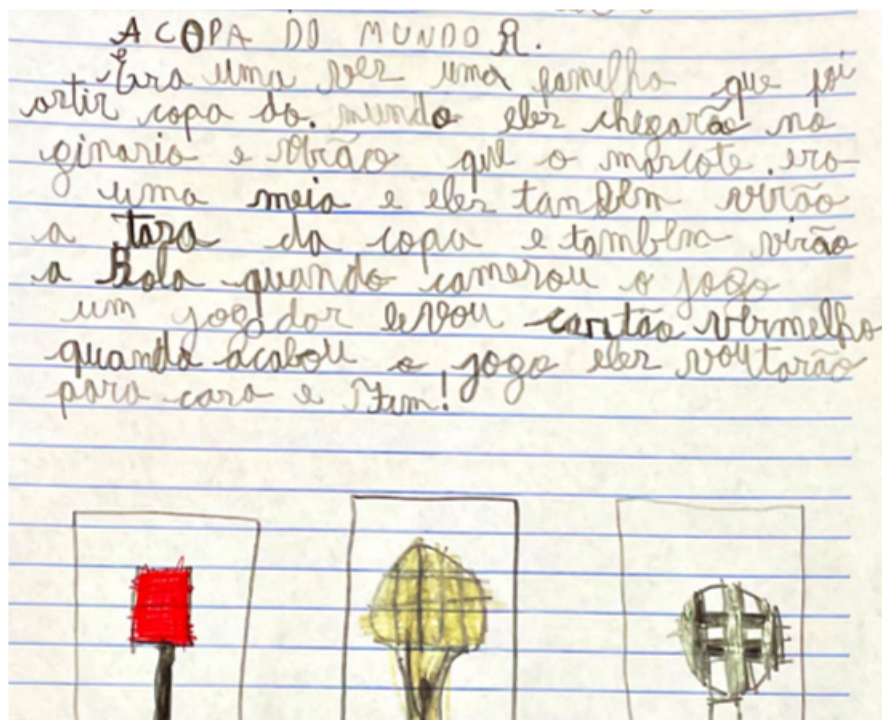 A COPA DO MUNDO R.
Era uma vez uma familha que foi
artir copa do. mundo eles chegarão no
ginario e virão que o marcote era
uma meia e eles também virão
a taza da copa e também virão
a Bola quando comezou o jogo
um jogador levou cartão vermelho
quando acabou o jogo eles voltarão
para cara e Fim!